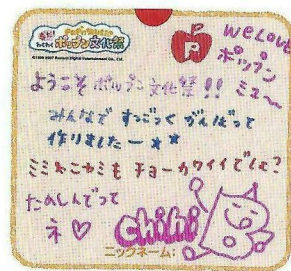 ポップン文化祭
we Love
ポップン
ミュ〜
ようこそ ポップン文化祭!!
みんなで すっごっく がんばって
作りましたー★★
ミミもニャミも チョーカワイイでしょ?
たのしんでって
ネ♡
chihi
ニックネーム: